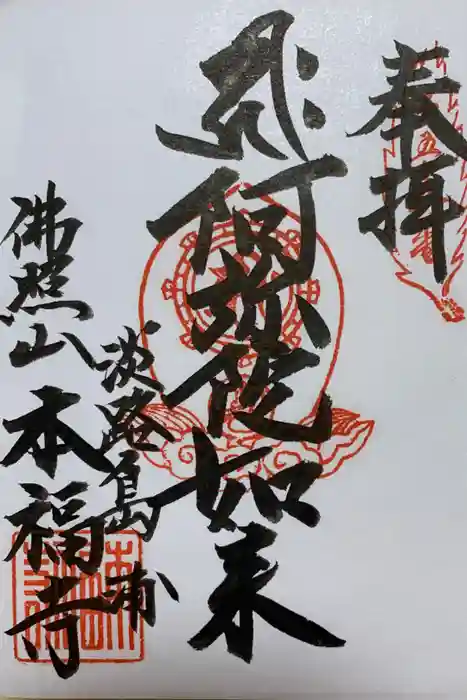 奉拝
𑖮𑖿𑖨𑖱𑖾 阿弥陀如来
淡路島浦
佛照山本福寺